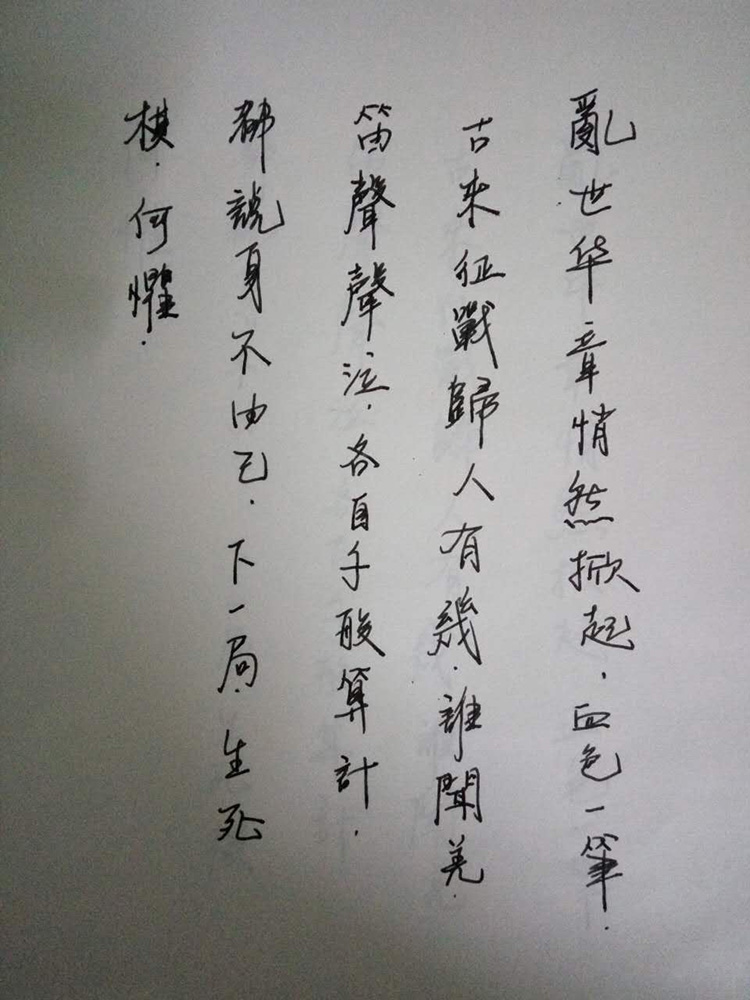 亂世华章悄然掀起．血色一筆．
古來征戰歸人有幾．誰聞羌
笛聲聲泣．各自千般算計．
都說身不由己．下一局．生死
棋．何懼．